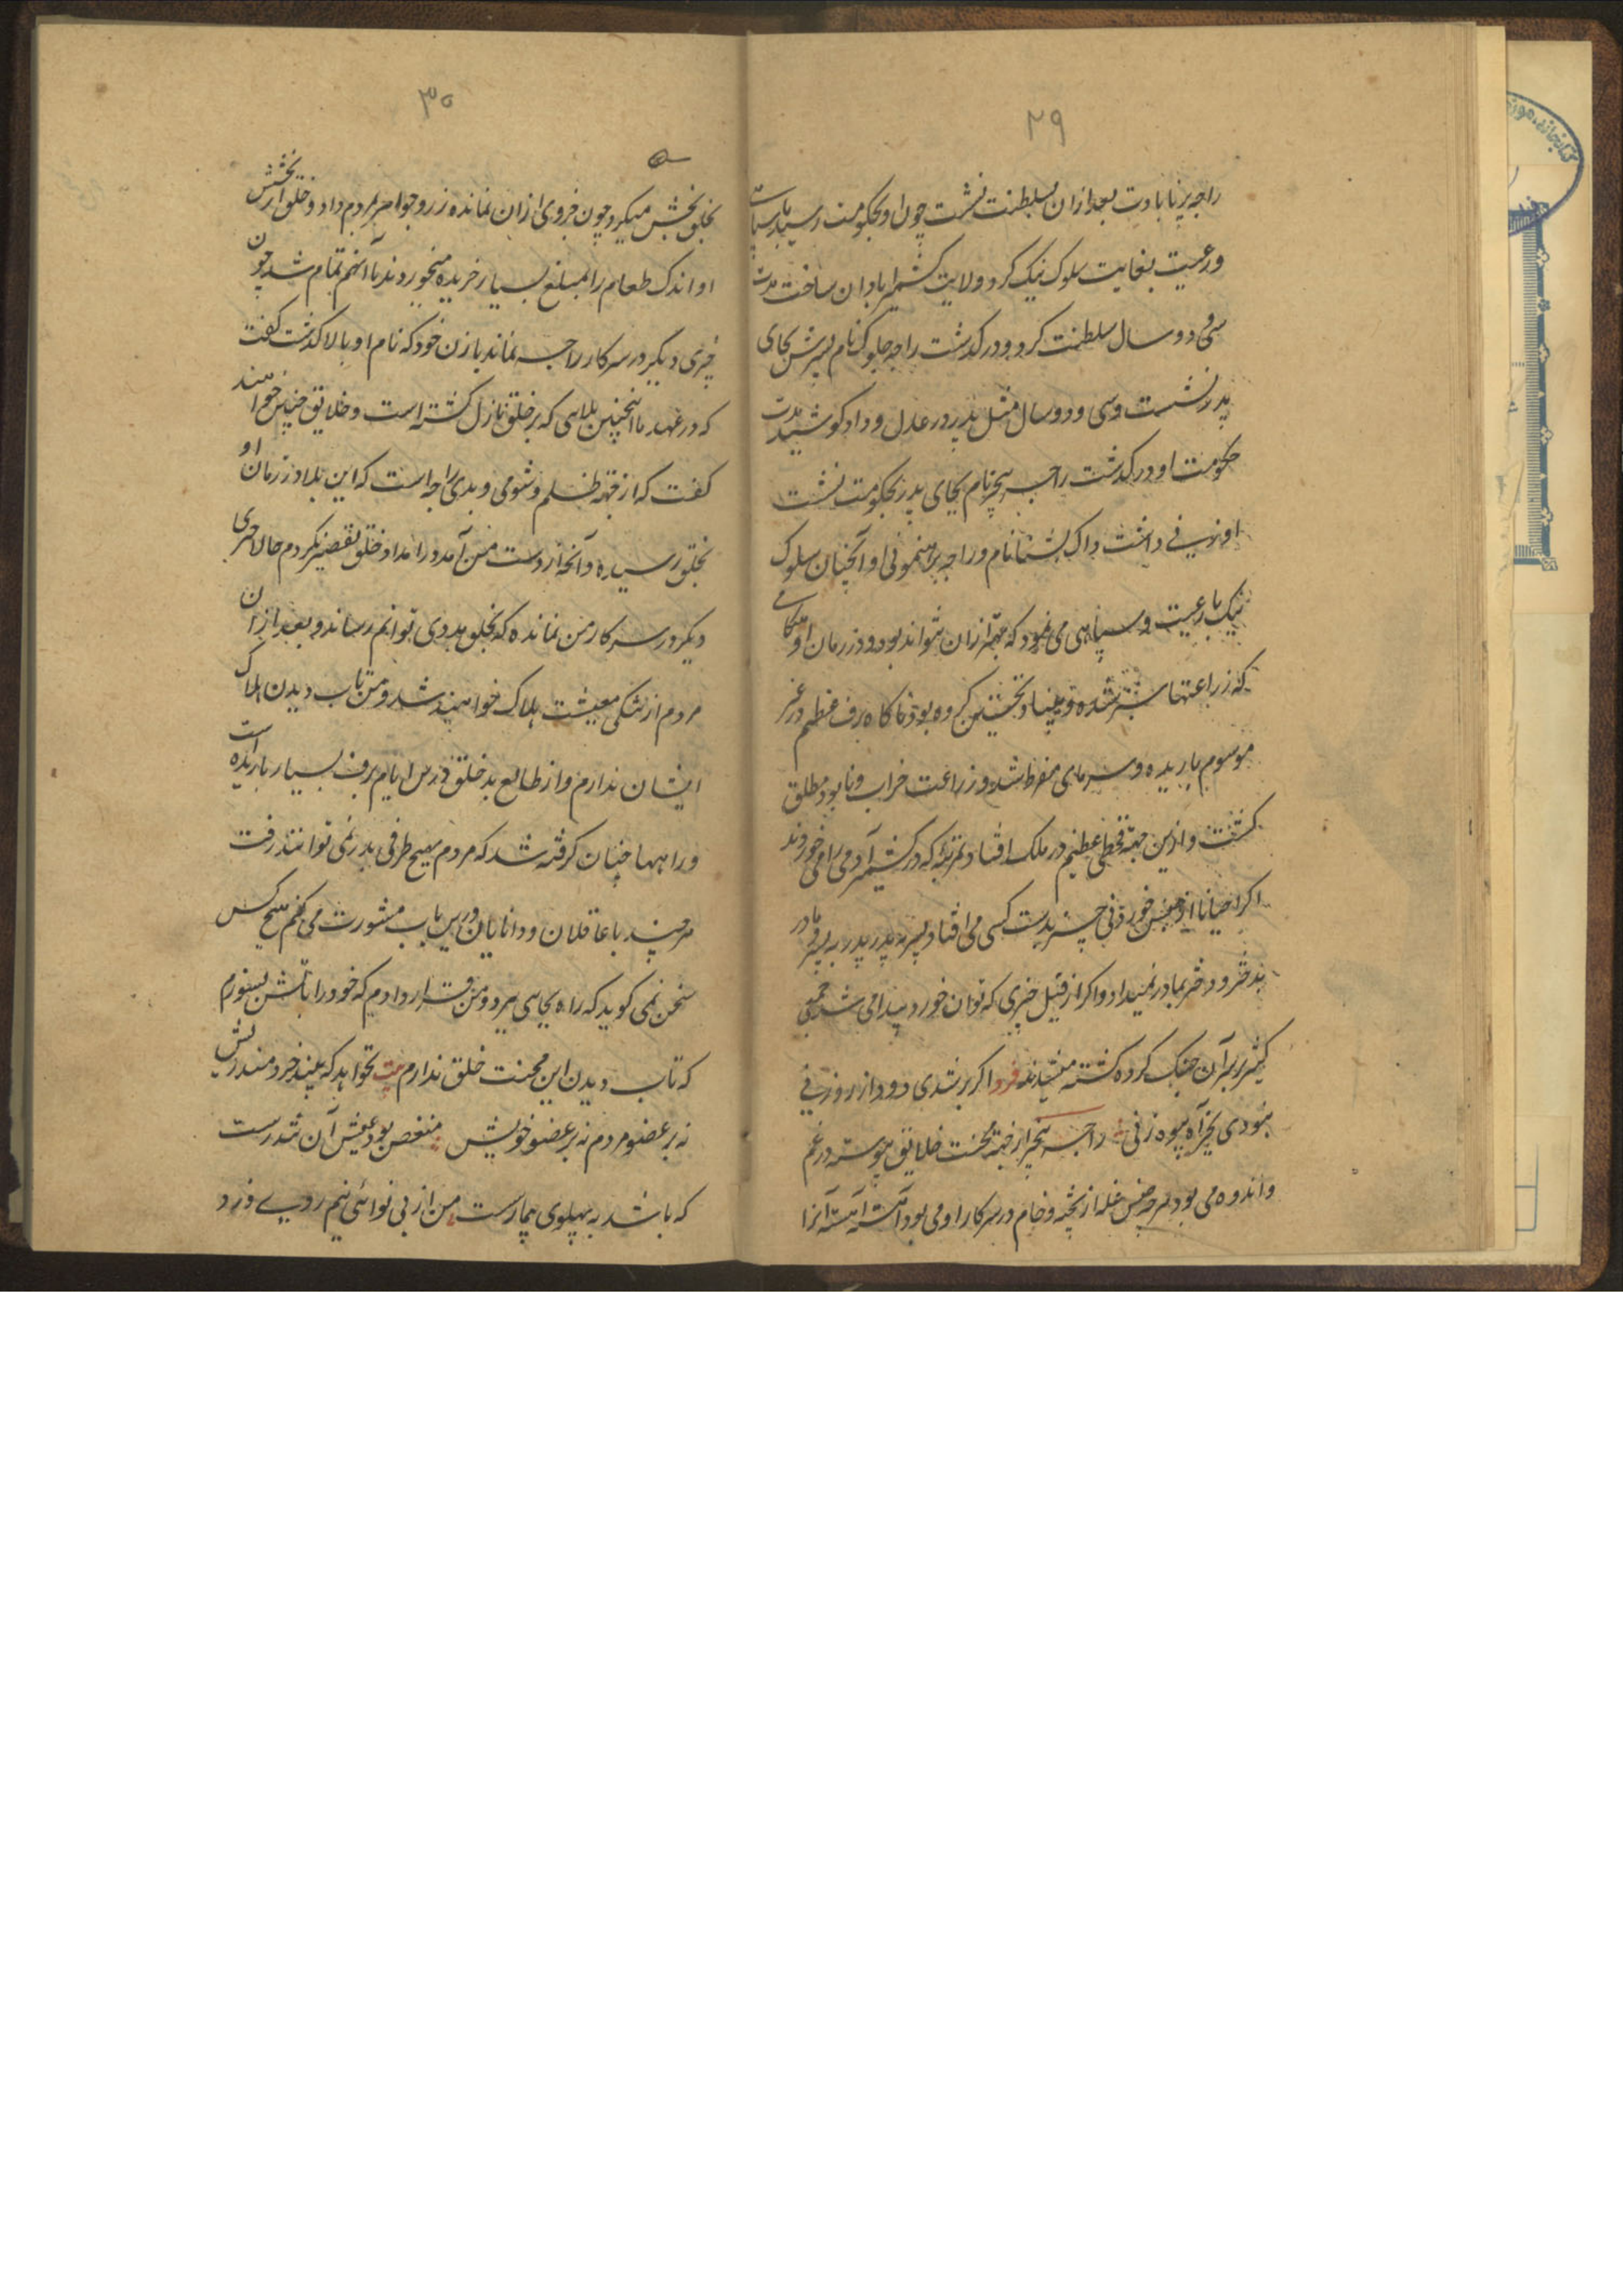 ۲۹
راجه پرتابادت بعد ازان بسلطنت نشست چون او بحکومت رسید باسپاه
ورعیت بغایت سلوک نیک کرد و ولایت کشمیر ابادان ساخت مدت
سی و دو سال سلطنت کرد و درکذشت راجه جلوک نام پسرش بجای
پدر نشست و سی و دو سال مثل پدر در عدل و داد کوشید مدت
حکومت او درکذشت راجه سنجر نام بجای پدر بحکومت نشست
او زنی داشت واک پشتا نام و راجه برهنمونی او آنچنان سلوک
نیک بارعیت و سپاهی می نمود که بهتر ازان نتواند بود و در زمان او هنکامی
که زراعتها سبز شده و بنیاد پختن کرده بود ناکاه برف عظیم در غیر
موسوم باریده و سرمای مفرط شد و زراعت خراب و نابود مطلق
کشت و ازین جهة قحطی عظیم در ملک افتاد بمرتبه که در کشمیر آدمی را می خوردند
اکر احیانا از جنس خوردنی چیز بدست کسی می افتاد پسر به پدر پدر به پسر و مادر
بدختر و دختر بمادر نمیداد و اکر از قبیل چیزی که توان خورد پیدا می شد جمعی
کثیر بر سر آن جنک کرده کشته میشدند فرد اکر بر شدی دود از روزنی
نبودی بجز آه بیوه زنی راجه سنجر از جهة محنت خلایق پیوسته در غم
و اندوه می بود هر جنس غله از پخته و خام در سرکار او می بود آهسته آهسته آنرا
۳۰
بخلق بخش میکرد چون جزوی ازان نماند و زر و جواهر بمردم داد و خلق از بخشش
او اندک طعام را بمبلغ بسیار خریده میخوردند تا آنهم تمام شد چون
چیزی دیکر در سرکار راجه نماند با زن خود که نام او بالا کذشت کفت
که در عهد ما اینچنین بلاهی که بر خلق نازل کشته است و خلایق چنین خواهند
کفت که از جهة ظلم و شومی و بدی راجه است که این بلا در زمان او
بخلق رسیده و آنچه از دست من آمد در امداد خلق تقصیر نکردم حالا چیزی
دیکر در سرکار من نمانده که بخلق مددی توانم رساند و بعد ازان
مردم از تنکی معیشت هلاک خواهند شد و من تاب دیدن هلاک
ایشان ندارم و از طالع بد خلق درین ایام برف بسیار باریده است
و راهها چنان کرفته شد که مردم بهیچ طرفی بدر نمی توانند رفت
هر چند با عاقلان و دانایان درین باب مشورت می کنم هیچ کس
سخن نمی کوید که راه بجایی ببرد و من قرار دادم که خود را باتش بسوزم
که تاب دیدن این محنت خلق ندارم بیت نخواهد که بیند خردمند ریش
نه بر عضو مردم نه بر عضو خویش منغص بود عیش آن تندرست
که باشد به پهلوی بیمار سست من از بی نوائی نیم روی زرد